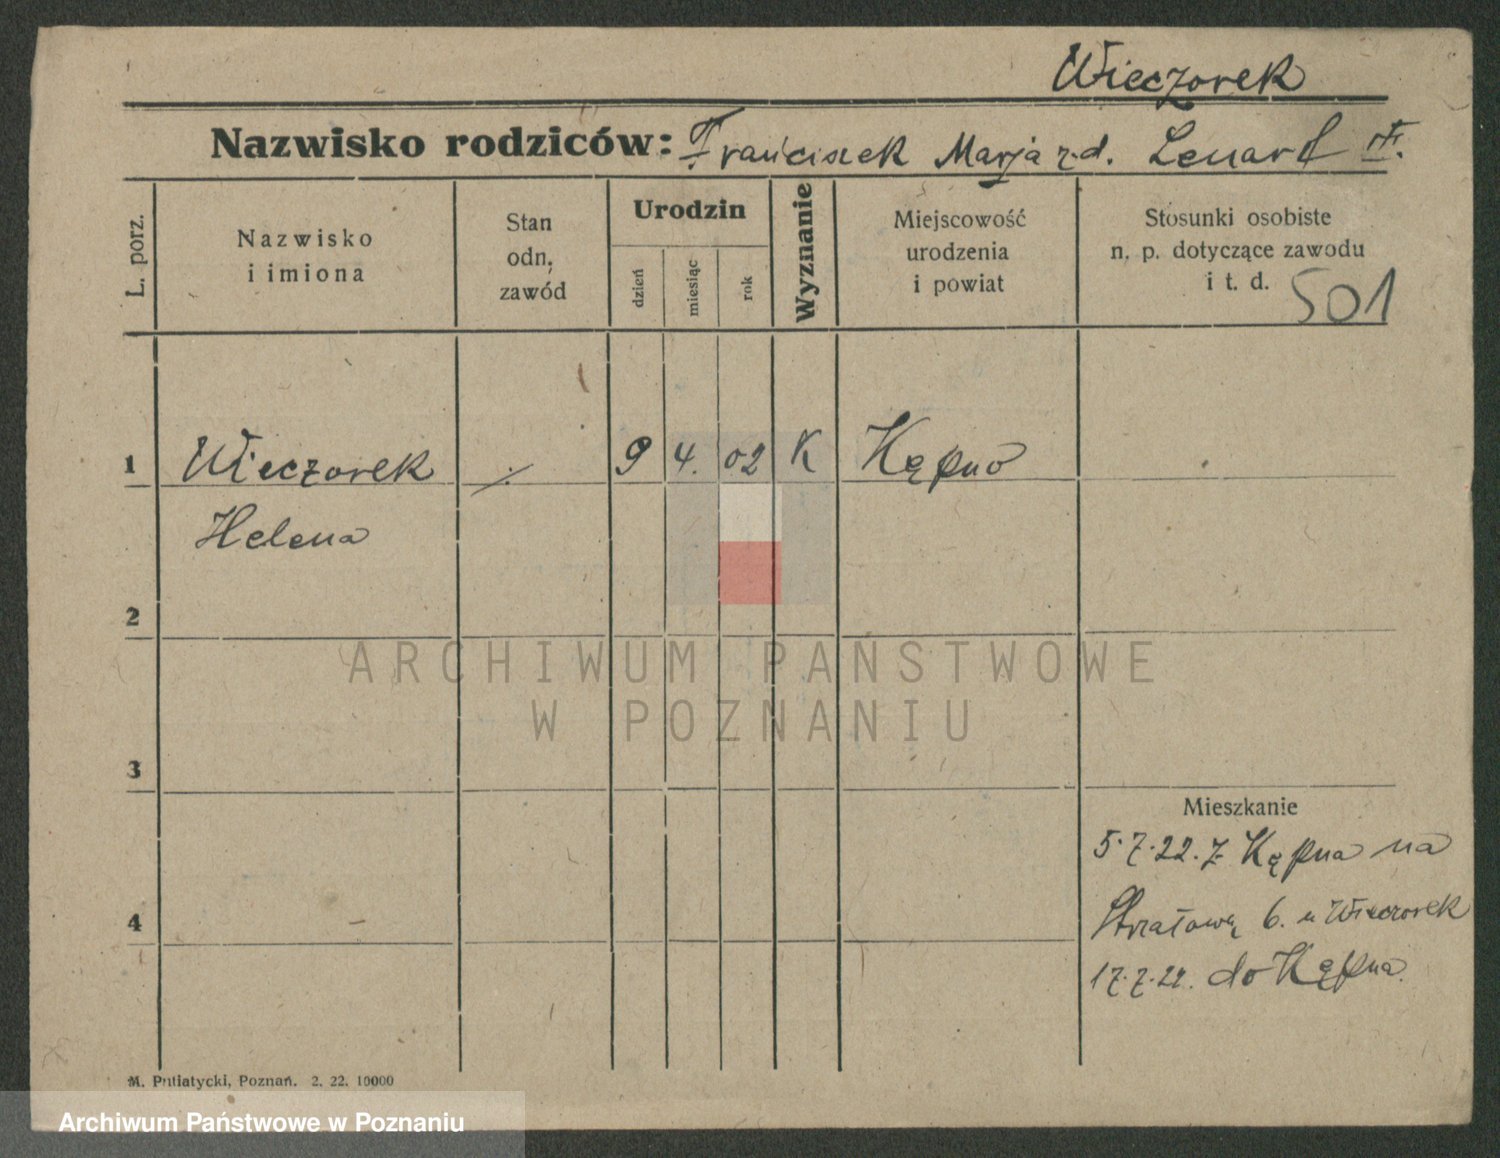 Wieczorek
Nazwisko rodziców: Franciszek Marja z.d. Lenart
L. porz.
Nazwisko
i imiona
Stan
odn.
zawód
Urodzin
dzień
miesiąc
rok
Wyznanie
Miejscowość
urodzenia
i powiat
Stosunki osobiste
n. p. dotyczące zawodu
i t. d.
501
1 Wieczorek ./. 9 4. 02 K Kępno
Helena
2
3
4
ARCHIWUM PAŃSTWOWE
W POZNANIU
Mieszkanie
5.7.22. z Kępna na
6. u Wieczorek
17.7.22. do Kępna.
M. Putiatycki, Poznań. 2. 22. 10000
Archiwum Państwowe w Poznaniu